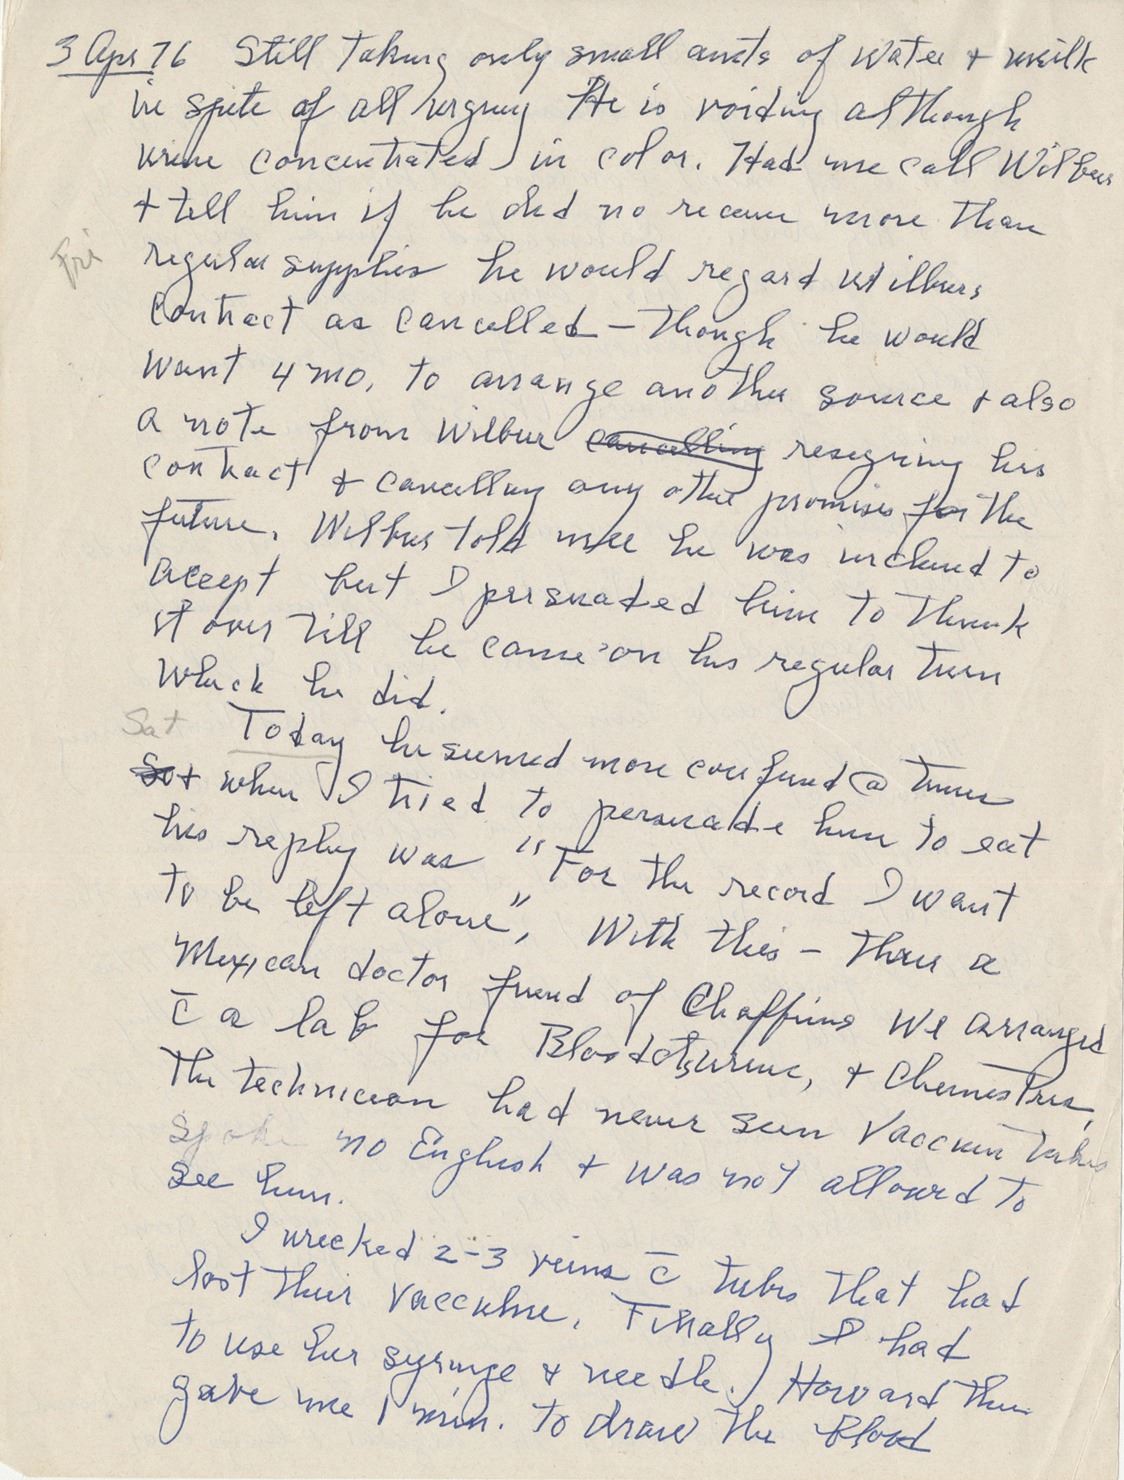 3 Apr 76 Still taking only small amts of water + milk
in spite of all urging He is voiding although
urine concentrated in color. Had me call Wilbur
+ tell him if he did no receive more than
Fri
regular supplies he would regard Wilburs
contract as cancelled – though he would
want 4 mo. to arrange another source + also
a note from Wilbur cancelling resigning his
contract + cancelling any other promises for the
future. Wilbur told me he was inclined to
accept but I persuaded him to think
it over till he came on his regular turn
which he did.
Sat
Today he seemed more confused @ times
+ when I tried to persuade him to eat
his reply was "For the record I want
to be left alone", With this – thru a
Mexican doctor friend of Chaffins we arranged
c̄ a lab for Blood, urine, + Chemistries,
The technician had never seen Vaccum tubes
spoke no English + was not allowed to
see him.
I wrecked 2-3 veins c̄ tubes that had
lost their vaccume. Finally I had
to use her syringe & needle. Howard then
gave me 1 min. to draw the blood